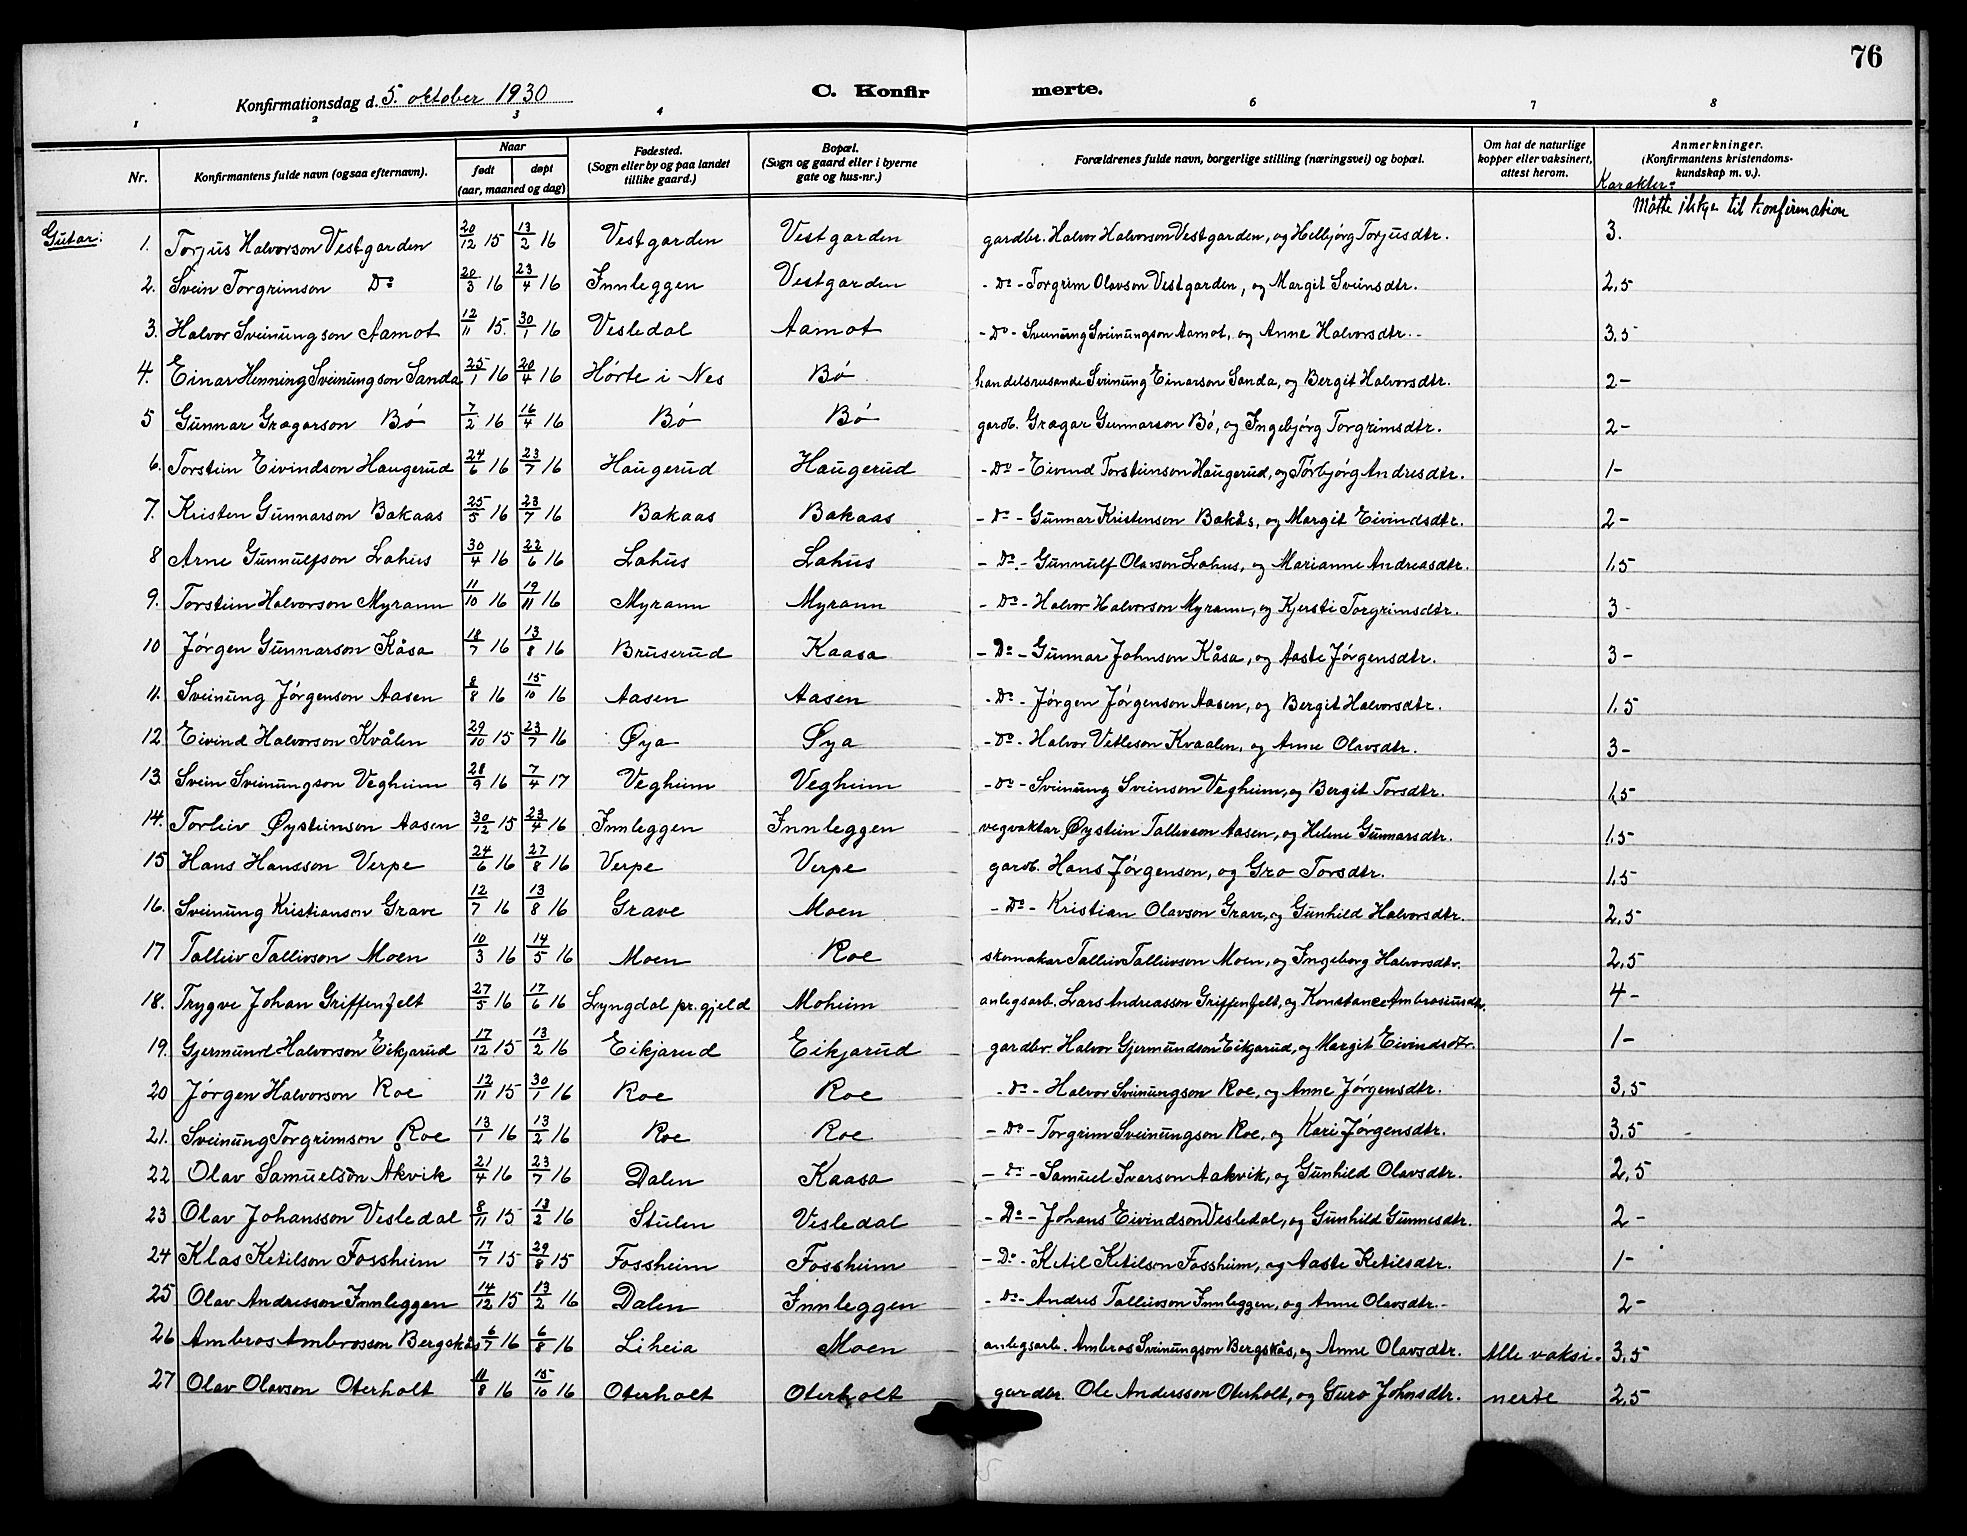 76
Konfirmationsdag d. 5. oktober 1930
C. Konfir merte.
1 2 3 4 6 7 8
Nr. Konfirmantens fulde navn (ogsaa efternavn). Naar født døpt (aar, maaned og dag) Fødested. (Sogn eller by og paa landet tillike gaard.) Bopæl. (Sogn og gaard eller i byerne gate og hus-nr.) Forældrenes fulde navn, borgerlige stilling (næringsvei) og bopæl. Om hat de naturlige kopper eller vaksinert, attest herom. Anmerkninger. (Konfirmantens kristendoms-kundskap m. v.).
Karakter:
Møtte ikkje til konfirmation
Gutar:
1. Torjus Halvorson Vestgarden 20/12 15 13/2 16 Vestgarden Vestgarden gardbr. Halvor Halvorson Vestgarden, og Helbjørg Torjusdtr. 3.
2. Svein Torgrimson Do 20/3 16 23/4 16 Innleggen Vestgarden - Do - Torgrim Olavson Vestgarden, og Margit Sveinsdtr. 2,5
3. Halvor Sveinungson Aamot 12/11 15 30/1 16 Vesledal Aamot - Do - Sveinung Sveinungson Aamot, og Anne Halvorsdtr. - 3,5
4. Einar Henning Sveinungson Sanda 25/1 16 20/4 16 Hörte i Nes Bö handelsreisande Sveinung Einarson Sanda, og Bergit Halvorsdtr. 2-
5 Gunnar Gregarson Bö 7/2 16 16/4 16 Bö Bö gardb. Gregar Gunnarson Bö, og Ingebjørg Torgrimsdtr. 2-
6. Torstein Eivindson Haugerud 24/6 16 23/7 16 Haugerud Haugerud - Do - Eivind Torsteinson Haugerud, og Torbjørg Andresdtr. 1-
7. Kristen Gunnarson Bakaas 25/5 16 23/7 16 Bakaas Bakaas - Do - Gunnar Kristenson Bakås, og Margit Eivindsdtr. 2-
8 Arne Gunnulfson Lahus 30/4 16 22/6 16 Lahus Lahus - Do. - Gunnulf Olavson Lahus, og Marianne Andreasdtr. 1,5
9. Torstein Halvorson Myrann 11/10 16 19/11 16 Myrann Myrann - Do - Halvor Halvorson Myrann, og Kjersti Torgrimsdtr. 3-
10 Jørgen Gunnarson Kåsa 18/7 16 13/8 16 Bruserud Kaasa - Do - Gunnar Johnson Kåsa, og Aaste Jørgensdtr. 3-
11. Sveinung Jørgenson Aasen 8/8 16 15/10 16 Aasen Aasen - Do - Jørgen Jørgenson Aasen, og Bergit Halvorsdtr. 1,5
12 Eivind Halvorson Kvålen 29/10 15 23/7 16 Øya Øya - Do - Halvor Vetleson Kvaalen, og Anne Olavsdtr. 3-
13. Svein Sveinungson Vegheim 28/9 16 7/4 17 Vegheim Vegheim - Do - Sveinung Sveinson Vegheim, og Bergit Torsdtr. 1,5
14. Torleiv Øysteinson Aasen 30/12 15 23/4 16 Innleggen Innleggen vegvaktar Øystein Talleivson Aasen, og Helene Gunnarsdtr. 1,5
15 Hans Hansson Verpe 24/6 16 27/8 16 Verpe Verpe gardb. Hans Jørgenson, og Gro Torsdtr. 1,5
16. Sveinung Kristianson Grave 12/7 16 13/8 16 Grave Moen - Do - Kristian Olavson Grave, og Gunhild Halvorsdtr. 2,5
17 Talleiv Talleivson Moen 10/3 16 14/5 16 Moen Roe skomakar Talleiv Talleivson Moen, og Ingeborg Halvorsdtr. 2,5
18. Trygve Johan Griffenfelt 27/5 16 17/6 16 Lyngdal pr.gjeld Moheim anlegsarb. Lars Andreasson Griffenfelt, og Konstance Ambrosiusdtr. 4-
19. Gjermund Halvorson Eikjarud 17/12 15 13/2 16 Eikjarud Eikjarud gardbr. Halvor Gjermundson Eikjarud, og Margit Eivindsdtr. 1-
20 Jørgen Halvorson Roe 12/11 15 30/1 16 Roe Roe - Do - Halvor Sveinungson Roe, og Anne Jørgensdtr. 3,5
21. Sveinung Torgrimson Roe 13/1 16 13/2 16 Roe Roe - Do - Torgrim Sveinungson Roe, og Kari Jørgensdtr. 3,5
22 Olav Samuelson Åkvik 21/4 16 23/7 16 Dalen Kaasa - Do - Samuel Ivarson Aakvik, og Gunhild Olavsdtr. 2,5
23 Olav Johansson Vesledal 8/11 15 13/2 16 Stulen Vesledal - Do - Johans Eivindson Vesledal, og Gunhild Gunnesdtr. 2-
24 Klas Ketilson Fossheim 17/7 15 29/8 15 Fossheim Fossheim - Do - Ketil Ketilson Fossheim, og Aaste Ketilsdtr. 1-
25 Olav Andresson Innleggen 14/12 15 13/2 16 Dalen Innleggen - Do - Andres Talleivson Innleggen, og Anne Olavsdtr. - 2-
26 Ambros Ambrosson Bergskås 6/7 16 6/8 16 Liheia Moen anlegsarb. Ambros Sveinungson Bergskås, og Anne Olavsdtr. Alle vaksi- 3,5
27 Olav Olavson Oterholt 11/8 16 15/10 16 Oterholt Oterholt gardbr. Ole Andersson Oterholt, og Guro Johnsdtr. nerte 2,5